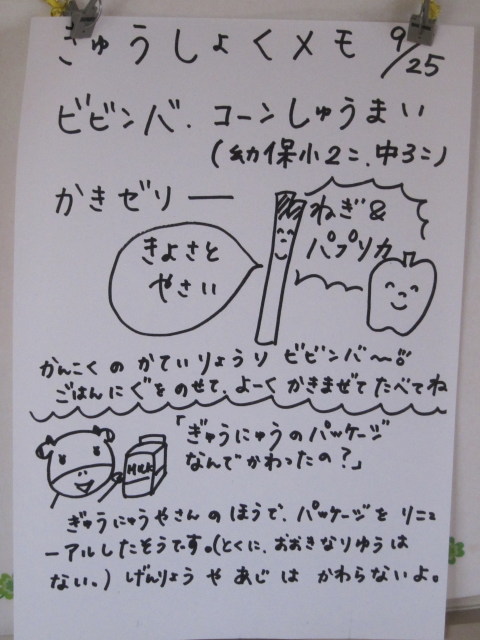 きゅうしょくメモ 9/25
ビビンバ、コーンしゅうまい
(幼保小2コ、中3コ)
かきゼリー
ねぎ&
パプリカ
きよさと
やさい
かんこくのかていりょうり ビビンバ〜!!
ごはんにぐをのせて、よーくかきまぜてたべてね
「ぎゅうにゅうのパッケージ
なんでかわったの?」
Milk
ぎゅうにゅうやさんのほうで、パッケージをリニュ
ーアルしたそうです。(とくに、おおきなりゆうは
ない。) げんりょうやあじはかわらないよ。